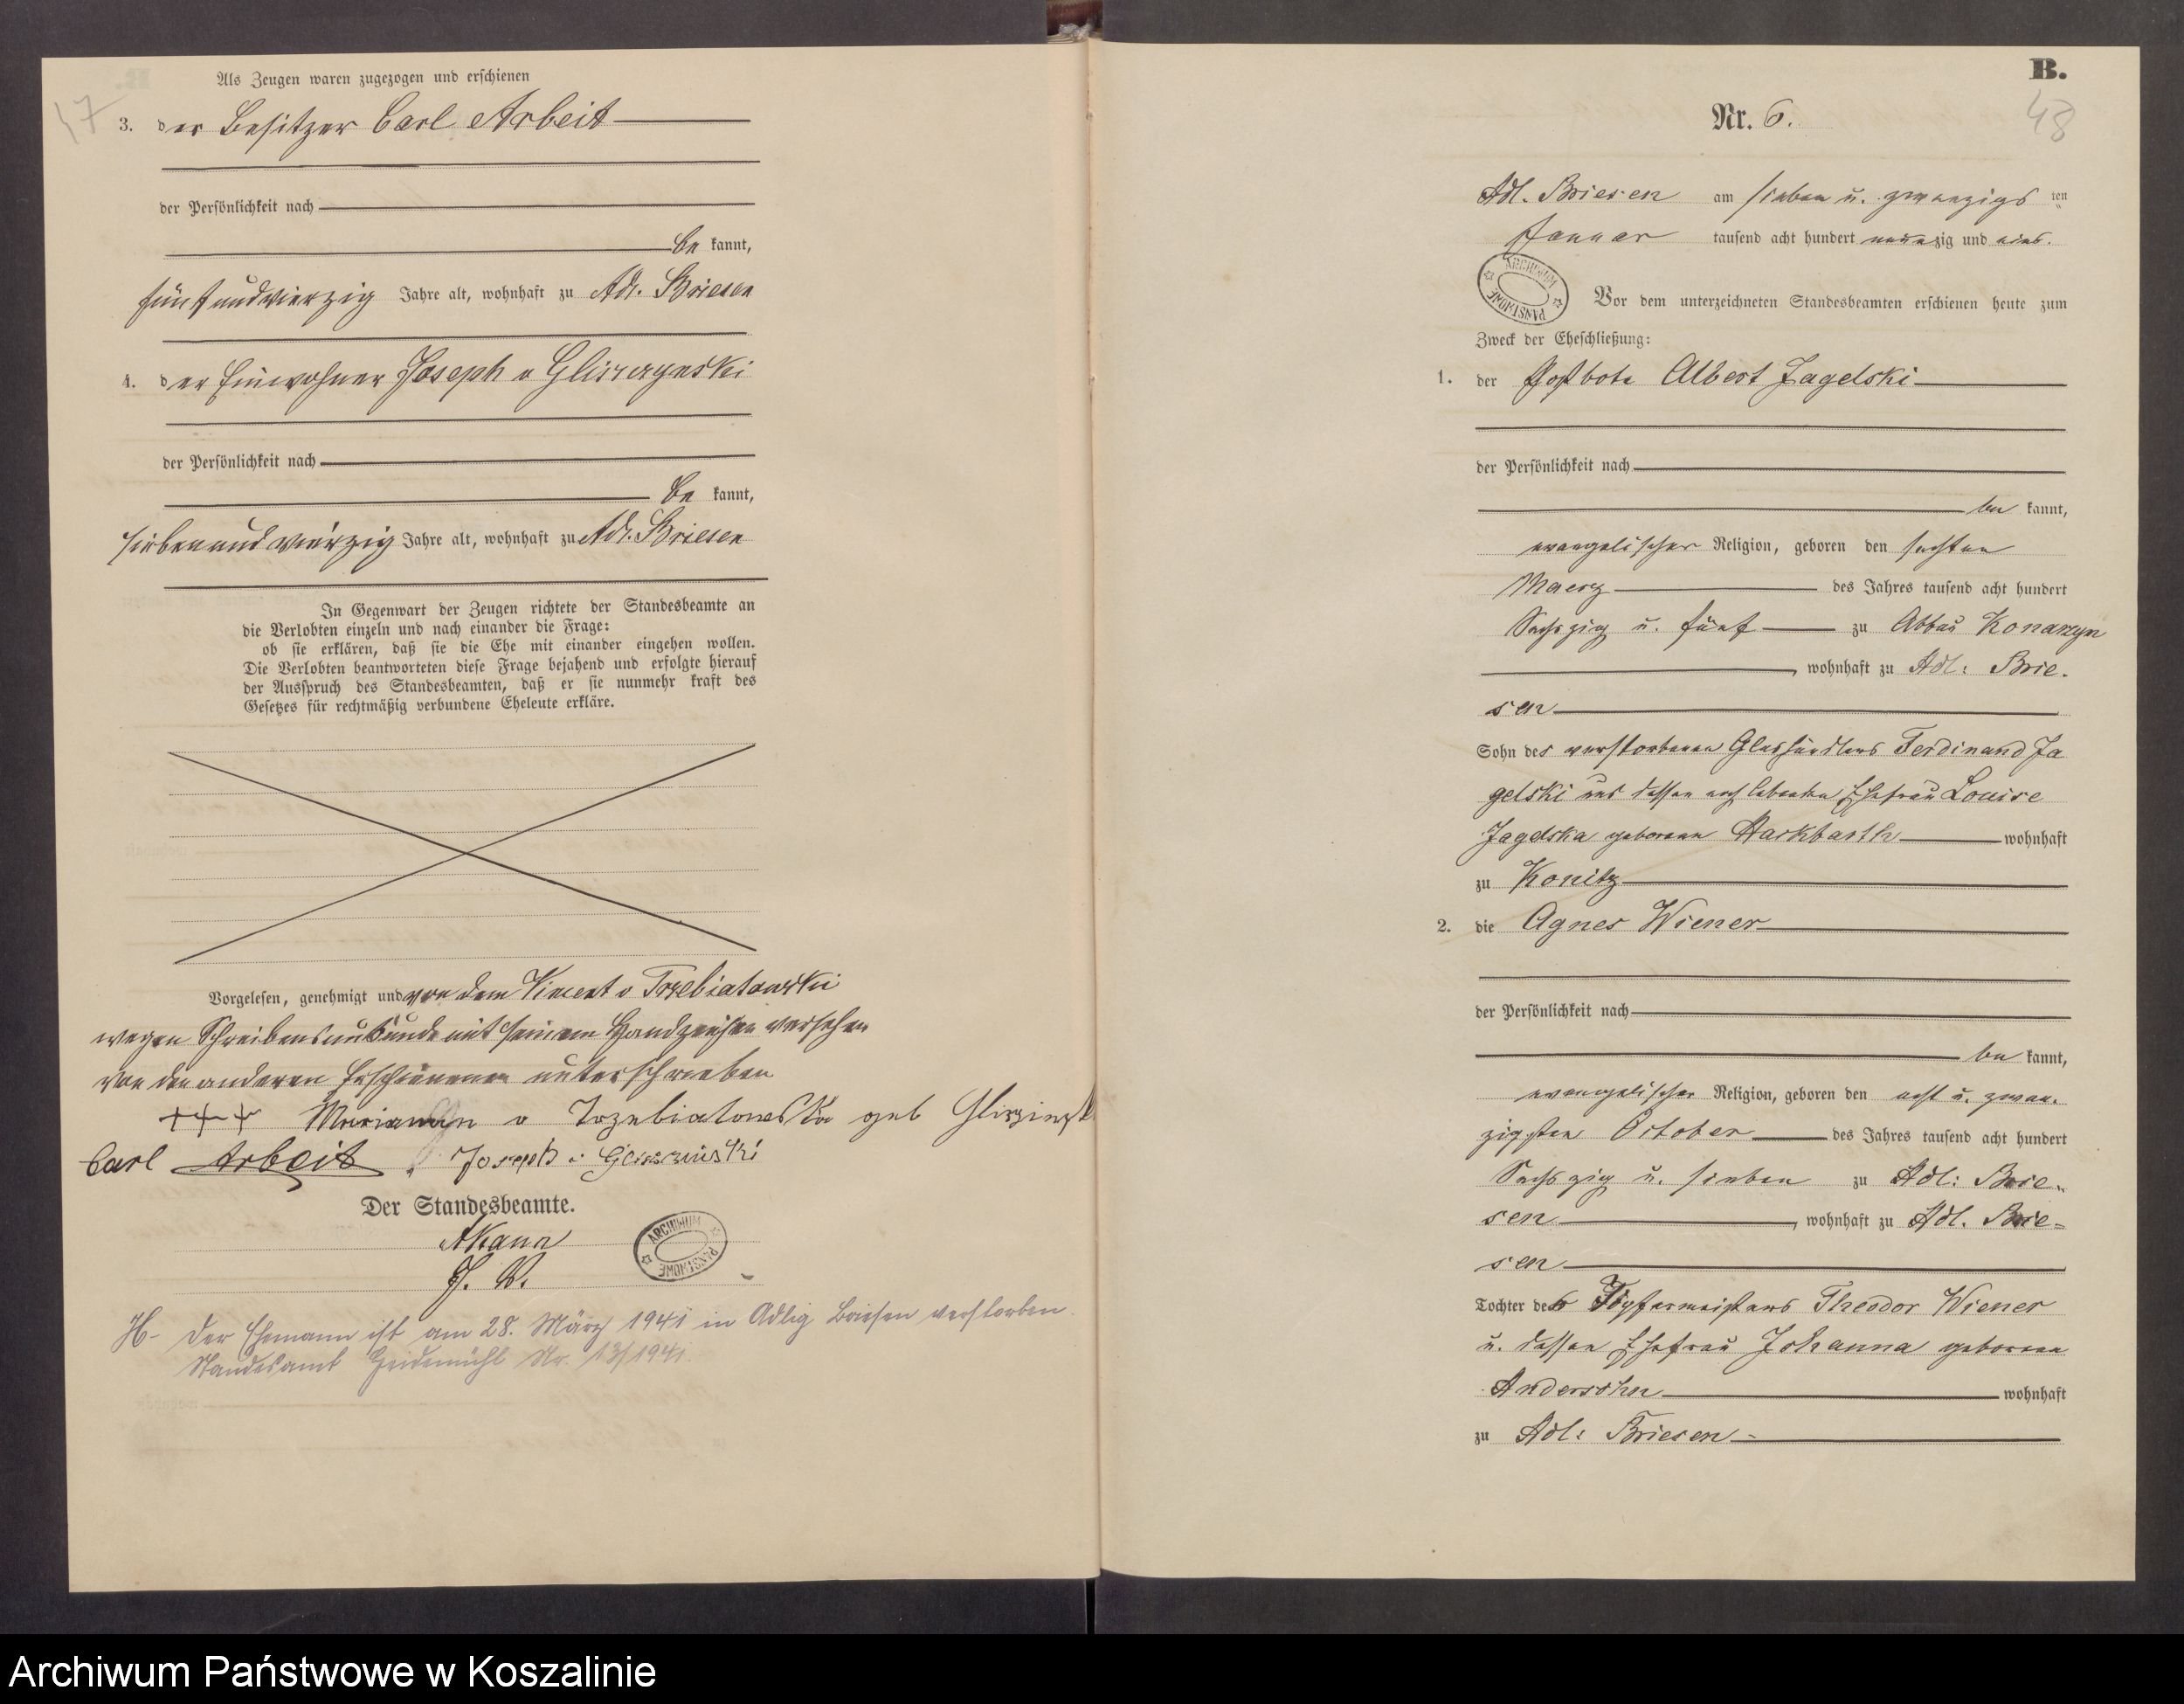 47
Als Zeugen waren zugezogen und erschienen
3. der Besitzer Carl Arbeit
der Persönlichkeit nach
be kannt,
fünfundvierzig Jahre alt, wohnhaft zu Adl. Briesen
4. der Einwohner Joseph v Gliszczynski
der Persönlichkeit nach
be kannt,
siebenundvierzig Jahre alt, wohnhaft zu Adl. Briesen
In Gegenwart der Zeugen richtete der Standesbeamte an
die Verlobten einzeln und nach einander die Frage:
ob sie erklären, daß sie die Ehe mit einander eingehen wollen.
Die Verlobten beantworteten diese Frage bejahend und erfolgte hierauf
der Ausspruch des Standesbeamten, daß er sie nunmehr kraft des
Gesetzes für rechtmäßig verbundene Eheleute erkläre.
Vorgelesen, genehmigt und von dem Vincent v Trzebiatowski
wegen Schreibensunkunde mit seinem Handzeichen versehen
von den anderen Erschienenen unterschrieben
+++ Mariann v Trzebiatowska geb Gliszinsk
Carl Arbeit, Joseph v Gliszinski
Der Standesbeamte.
AKann
J. V.
ARCHIWUM PAŃSTWOWE
H- Der Ehemann ist am 28. März 1941 in Adlig Briesen verstorben.
Standesamt Heidemühl Nr. 13/1941.
B.
48
Nr. 6.
Adl. Briesen am sieben u. zwanzigsten
Januar tausend acht hundert neunzig und eins.
ARCHIWUM PAŃSTWOWE
Vor dem unterzeichneten Standesbeamten erschienen heute zum
Zweck der Eheschließung:
1. der Postbote Albert Jagelski
der Persönlichkeit nach
be kannt,
evangelischer Religion, geboren den sechsten
Maerz des Jahres tausend acht hundert
Sechszig u. fünf zu Abbau Konarzyn
, wohnhaft zu Adl: Brie-
sen
Sohn des verstorbenen Glashändlers Ferdinand Ja
gelski und dessen noch lebenden Ehefrau Louise
Jagelska geborene Hackbarth wohnhaft
zu Konitz
2. die Agnes Wiener
der Persönlichkeit nach
be kannt,
evangelischer Religion, geboren den acht u. zwan-
zigsten October des Jahres tausend acht hundert
Sechszig u. sieben zu Adl: Brie-
sen, wohnhaft zu Adl. Brie-
sen
Tochter des Töpfermeisters Theodor Wiener
u. dessen Ehefrau Johanna geborene
Andersohn wohnhaft
zu Adl: Briesen
Archiwum Państwowe w Koszalinie